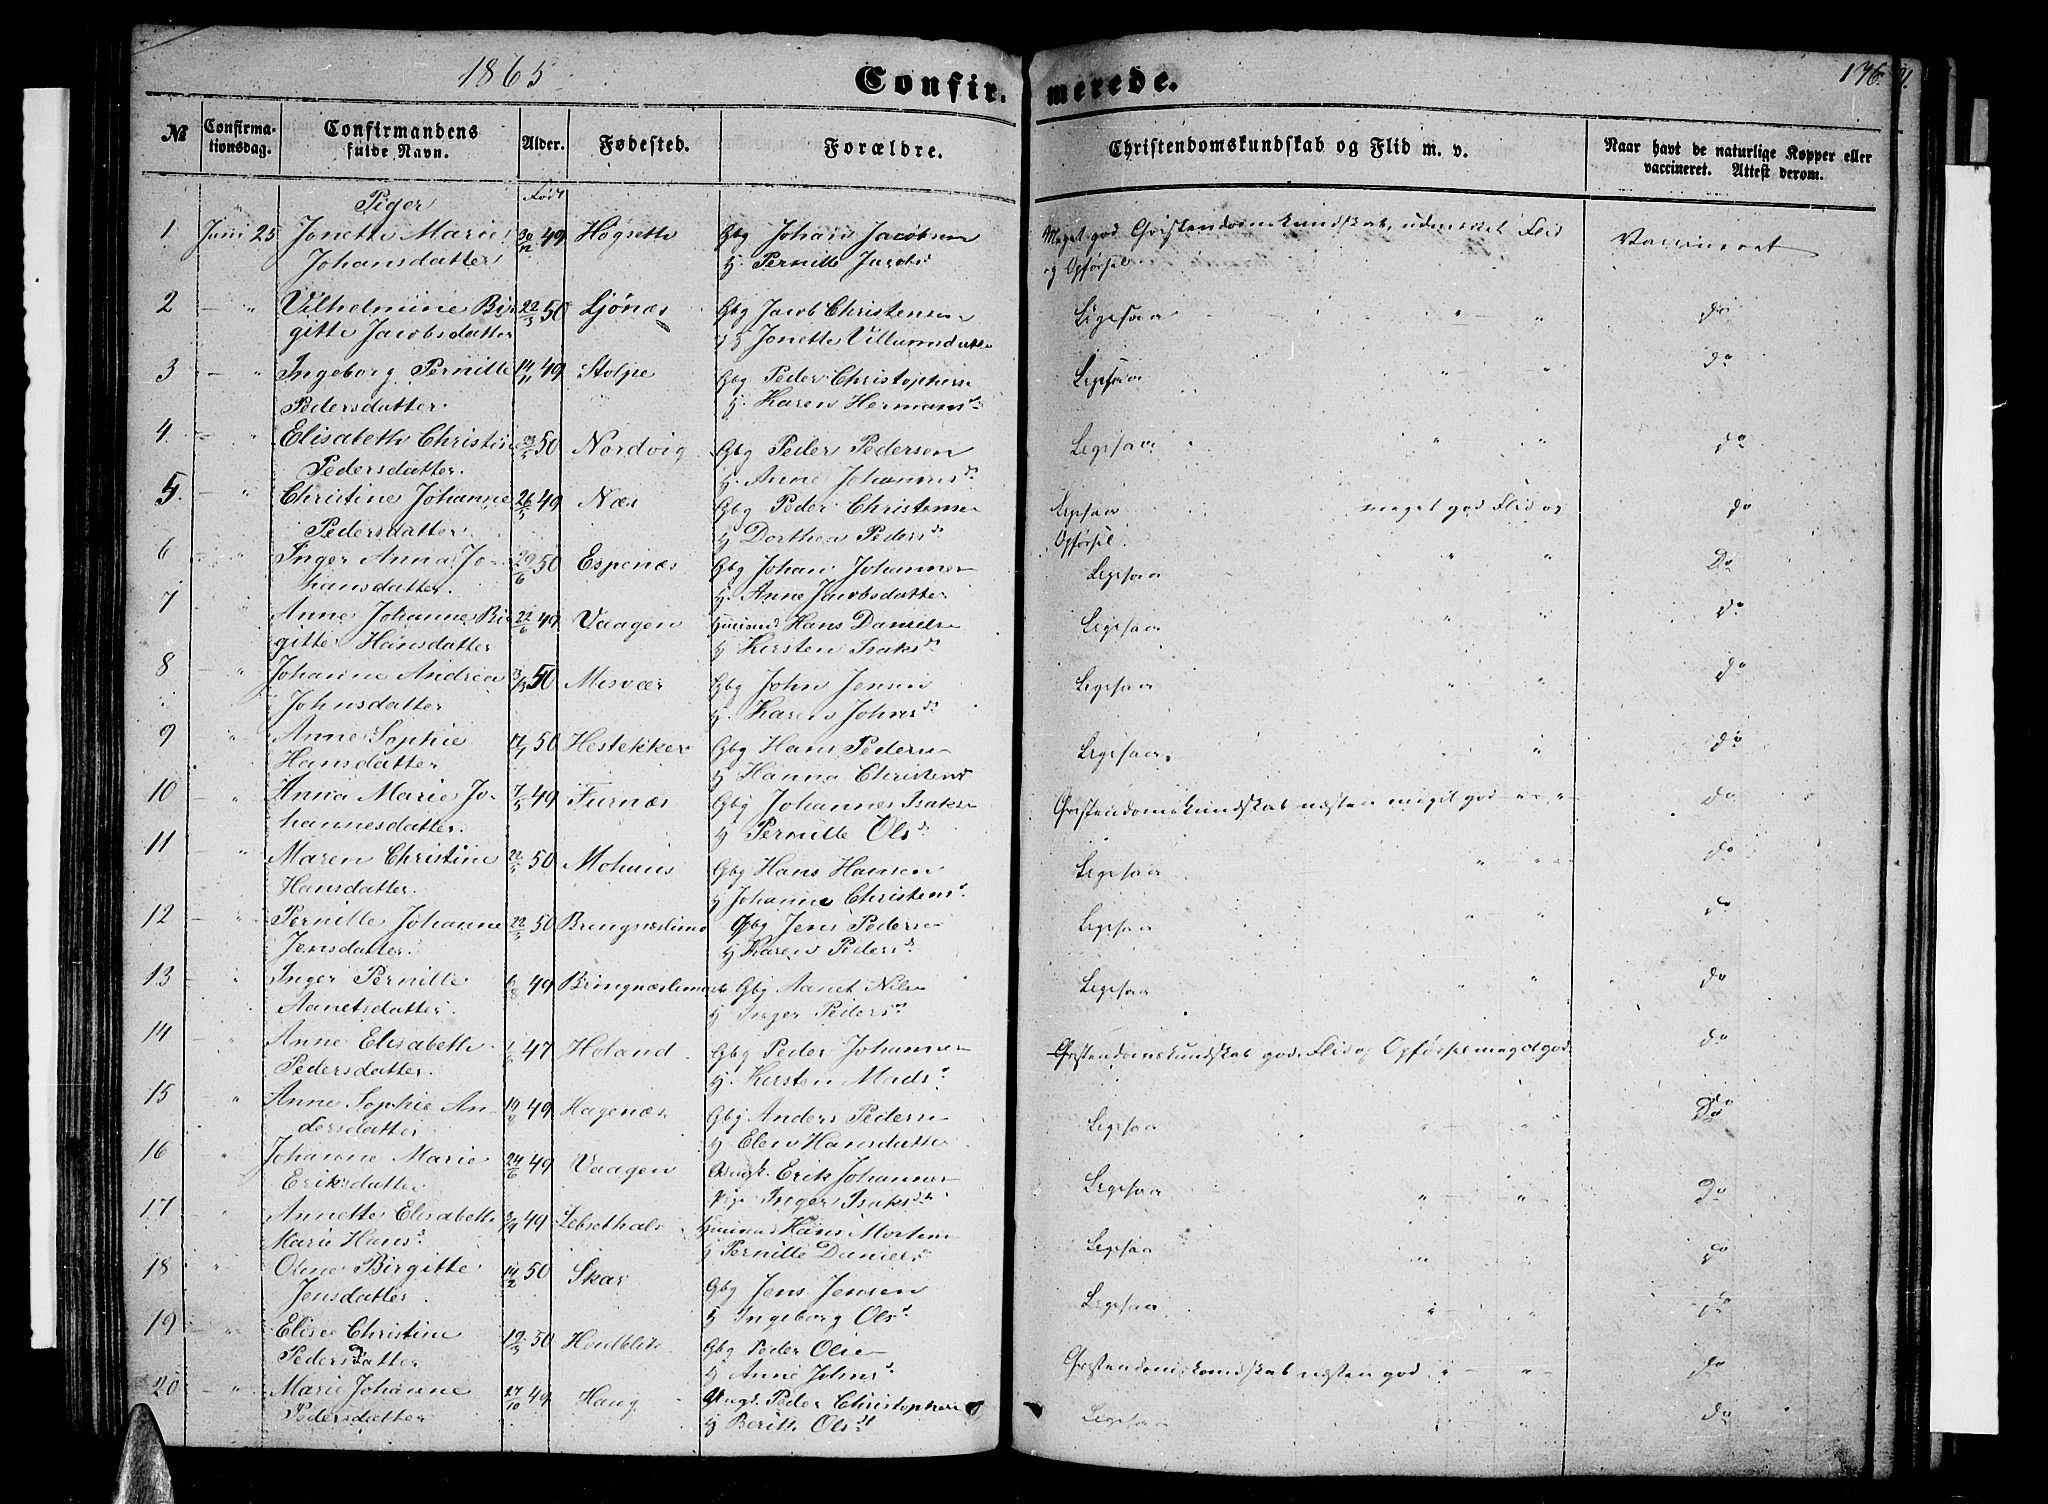 1865
Confirmerede.
176
№
Confirmationsdag.
Confirmandens fulde Navn.
Alder.
Fødested.
Forældre.
Christendomskundskab og Flid m. v.
Naar havt de naturlige Kopper eller vaccineret. Attest derom.
Piger
Født
1 Juni 25 Jonette Marie 30/12 49 Høgsette Gbg Johan Jacobsen Meget god Christendomskundskab, udmærket Flid Vaccineret
Johansdatter H. Pernille Jacobsd og Opførsel
2 — " Vilhelmine Bir 22/3 50 Ljønæs Gbg Jacob Christensen Ligesaa — " — " do
gitte Jacobsdatter H Jonette Villumsdatter
3 — " Ingeborg Pernille 14/11 49 Stolpe Gbg Peder Christophers Ligesaa " — " do
Pedersdatter. H. Karen Hermansd
4 — " Elisabeth Christine 50 Nordvig Gbg Peder Pedersen Ligesaa " " do
Pedersdatter. H. Anne Johannesd
5. — " Christine Johanne 26/5 49 Næs Gbg Peder Christense Ligesaa meget god Flid og do
Pedersdatter H Dorthea Pedersd Opførsel.
6 — " Inger Anna Jo- 29/6 50 Espenæs Gbg Johan Johannes Ligesaa " " Do
hansdatter. H. Anne Jacobsdatter
7 " Anne Johanne Bir 22/6 49 Vaagen Huusmd Hans Daniels Ligesaa " " do
gitte Hansdatter H Kirsten Isaksd
8 — " Johanne Andrea 50 Misvær Gbg John Jensen Ligesaa " " do
Johnsdatter H. Karen Johnsd
9 " Anne Sophie 17/1 50 Hestekker Gbg Hans Peders Ligesaa. " do
Hansdatter H Hanna Christensd
10 " Anna Marie Jo- 7/5 49 Furnæs Gbg Johannes Isaks Christendomskundskab næsten meget god — " — " do
hannesdatter. H Pernille Olsd
11 — " Maren Christine 22/5 50 Gbg Hans Hansen Ligesaa " — " do
Hansdatter. H Johanne Christensd.
12 — " Pernille Johanne 22/3 50 Bringnæslimo Gbg Jens Peders Ligesaa " — " do
Jensdatter. H Karen Pedersd
13 — " Inger Pernille 6/8 49 Bringnæslimo Gbg Aanet Nils Ligesaa " " do
Aanetsdatter. H Inger Pedersd
14 — " Anne Elisabeth 47 Holand Gbg Peder Johannes Christendomskundskab god. Flid og Opførsel meget god do
Pedersdatter. H. Kirsten Madsd
15 " Anne Sophie An- 19/8 49 Hagenæs Gbg Anders Peders Ligesaa " " do
dersdatter H Elen Hansdatter Do
16 — " Johanne Marie 24/6 49 Vaagen Ungk. Erik Johannes Ligesaa " — " — Do
Eriksdatter Pige Inger Isaksd
17 — " Annette Elisabeth 3/9 49 Huusmd Hans Mortens Ligesaa " do
Marie Hansd H Pernille Danielsd
18 " Oline Birgitte 14/2 50 Skar Gbg Jens Jensen Ligesaa " — " do
Jensdatter H Ingeborg Olsd
19 " Elise Christine 19/3 50 Gbg Peder Olsen Christendomskundskab næsten god. " — " — do
Pedersdatter H Anne Johnsd
20 — " Marie Johanne 27/10 49 Haug Ungk Peder Christophers Ligesaa " do
Pedersdatter H Berith Olsd